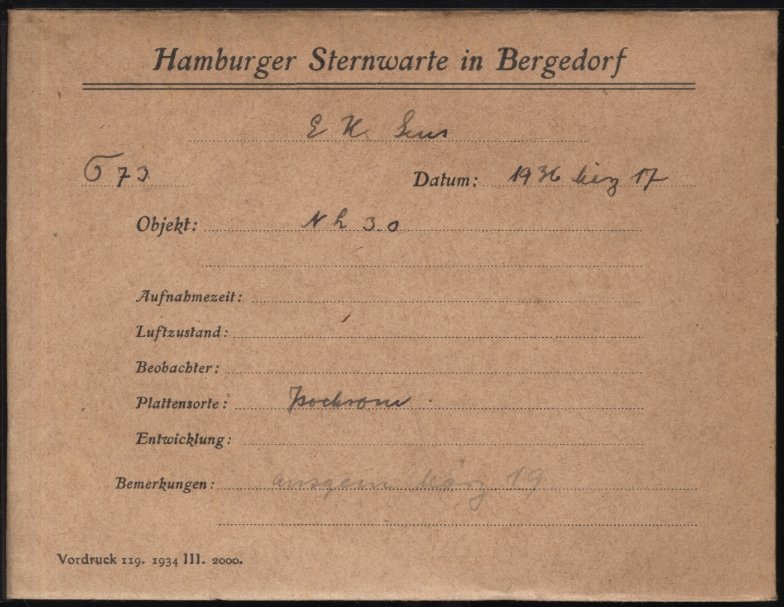 Hamburger Sternwarte in Bergedorf
E K.
G 73 Datum: 1936 März 17
Objekt: N h 30
Aufnahmezeit:
Luftzustand:
Beobachter:
Plattensorte: Isochrom
Entwicklung:
Bemerkungen: ausgem März 19
Vordruck 119. 1934 III. 2000.